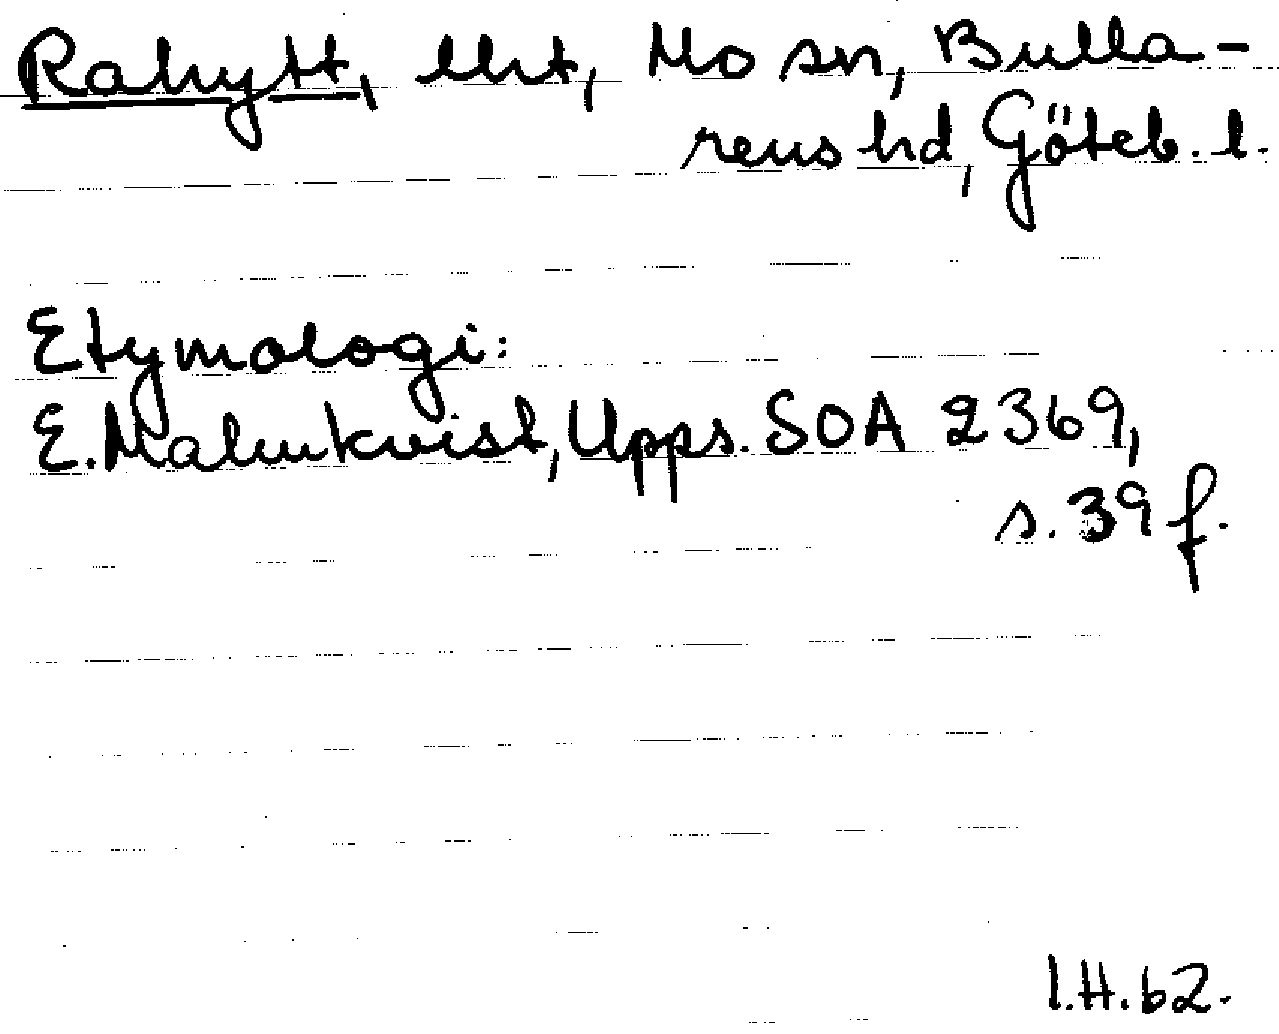 Rahytt, lht, Mo sn, Bulla-
rens hd, Göteb. l.
Etymologi:
E. Malmkvist, Upps. SOA 2369,
s. 39 f.
I.H. 62.